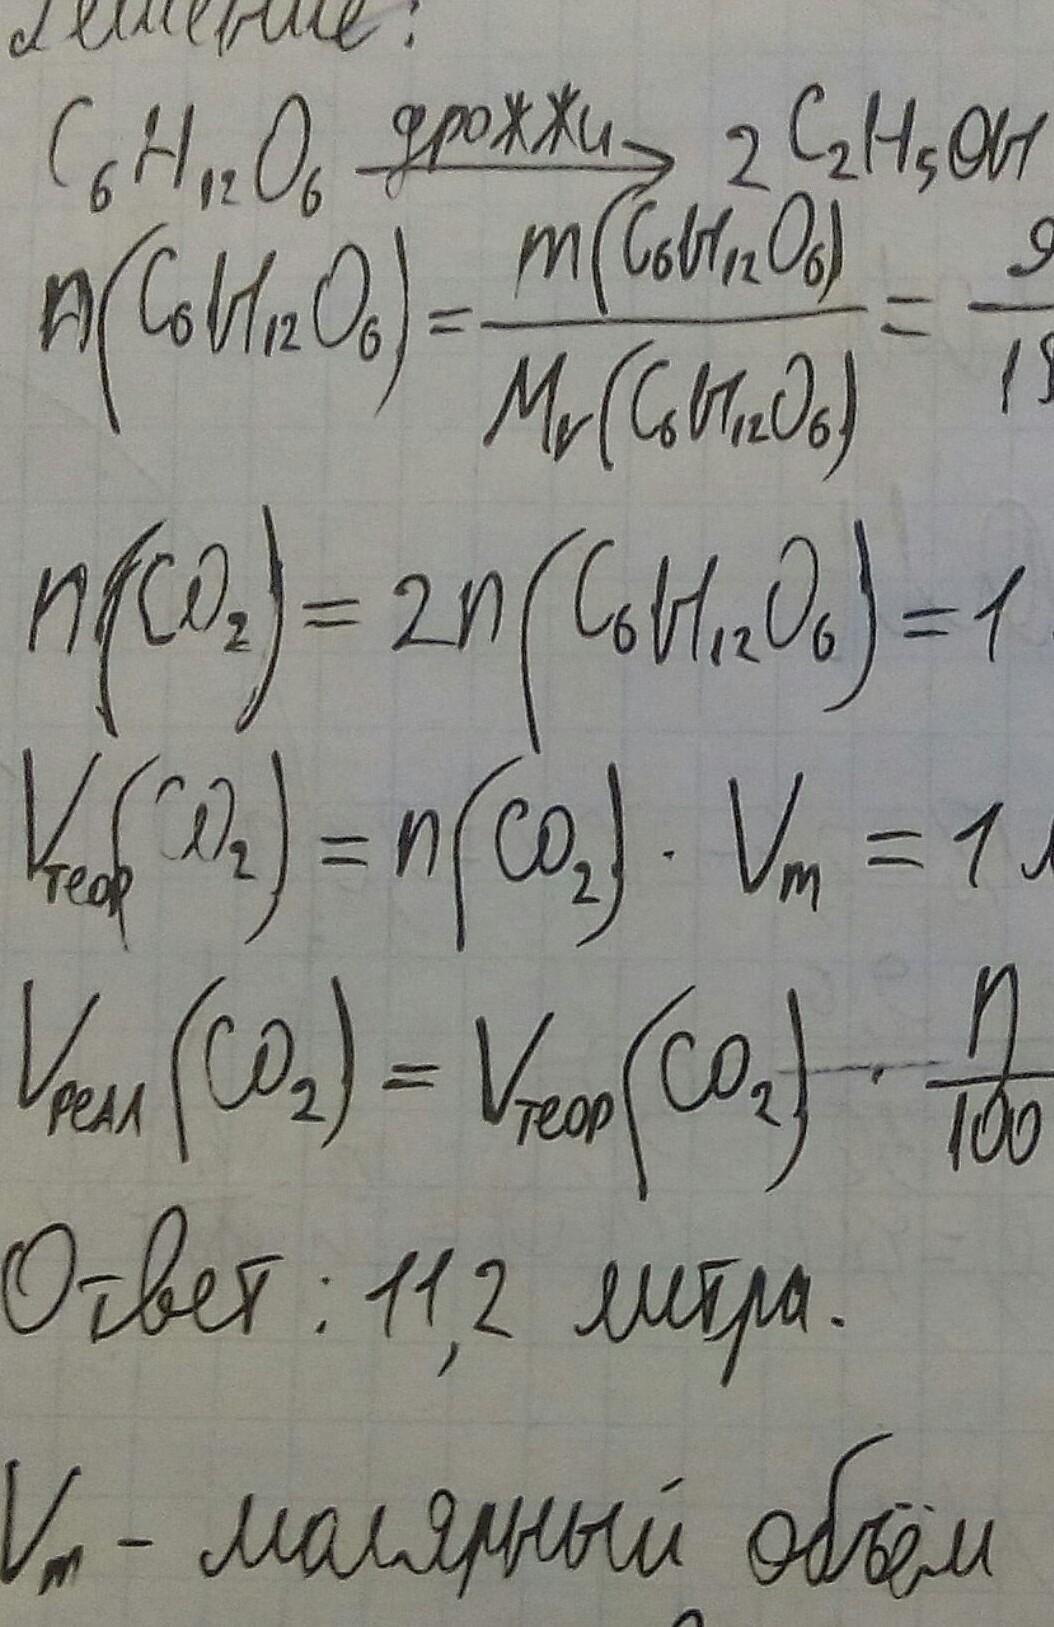 Решение:
C₆H₁₂O₆ дрожжи → 2 C₂H₅OH
n(C₆H₁₂O₆) = m(C₆H₁₂O₆) / Mr(C₆H₁₂O₆) =
n(CO₂) = 2n(C₆H₁₂O₆) = 1
Vтеор(CO₂) = n(CO₂) · Vm = 1
Vреал(CO₂) = Vтеор(CO₂) · η / 100
Ответ: 11,2 литра.
Vm - молярный объём